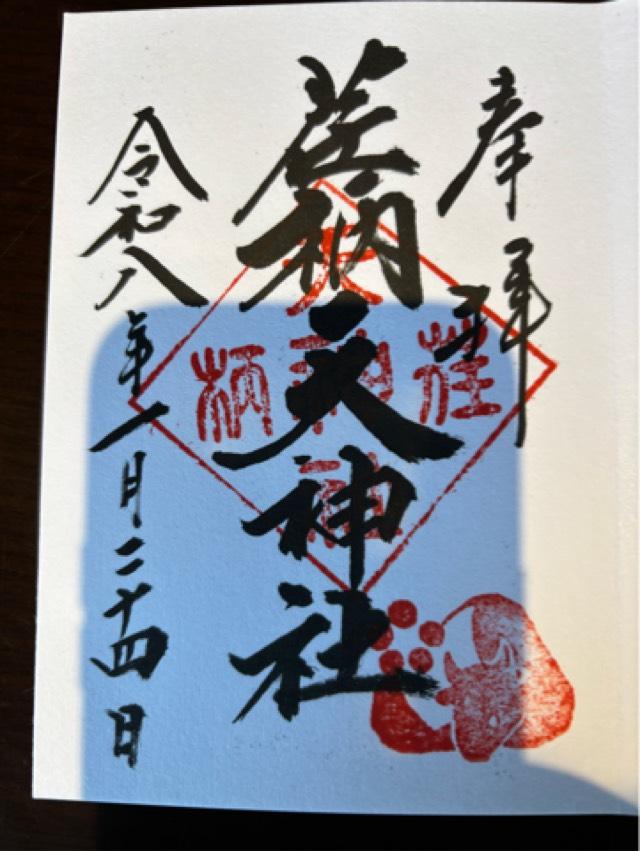 奉拝
荏柄天神社
令和八年一月二十四日
荏
天神社
柄